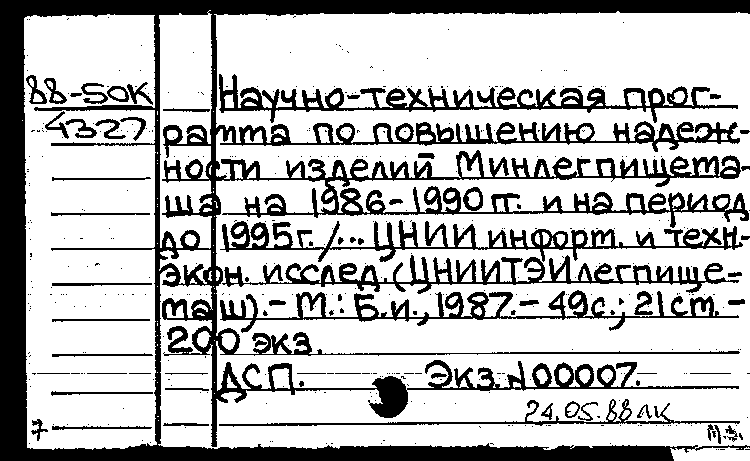 88-50К
4327
Научно-техническая прог-
рамма по повышению надеж-
ности изделий Минлегпищема-
ша на 1986-1990 гг. и на период
до 1995 г. /... ЦНИИ информ. и техн.-
экон. исслед. (ЦНИИТЭИлегпище-
маш). - М.: Б.и., 1987. - 49 с.; 21 см. -
200 экз.
ДСП. Экз. N 00007.
24.05.88 ЛК
7